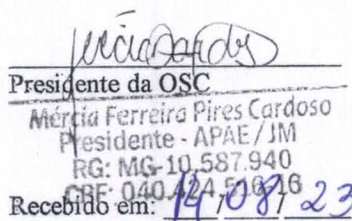 Presidente da OSC
Mércia Ferreira Pires Cardoso
Presidente - APAE/JM
RG: MG-10.587.940
CPF: 040.424.516-16
Recebido em: 14/08/23